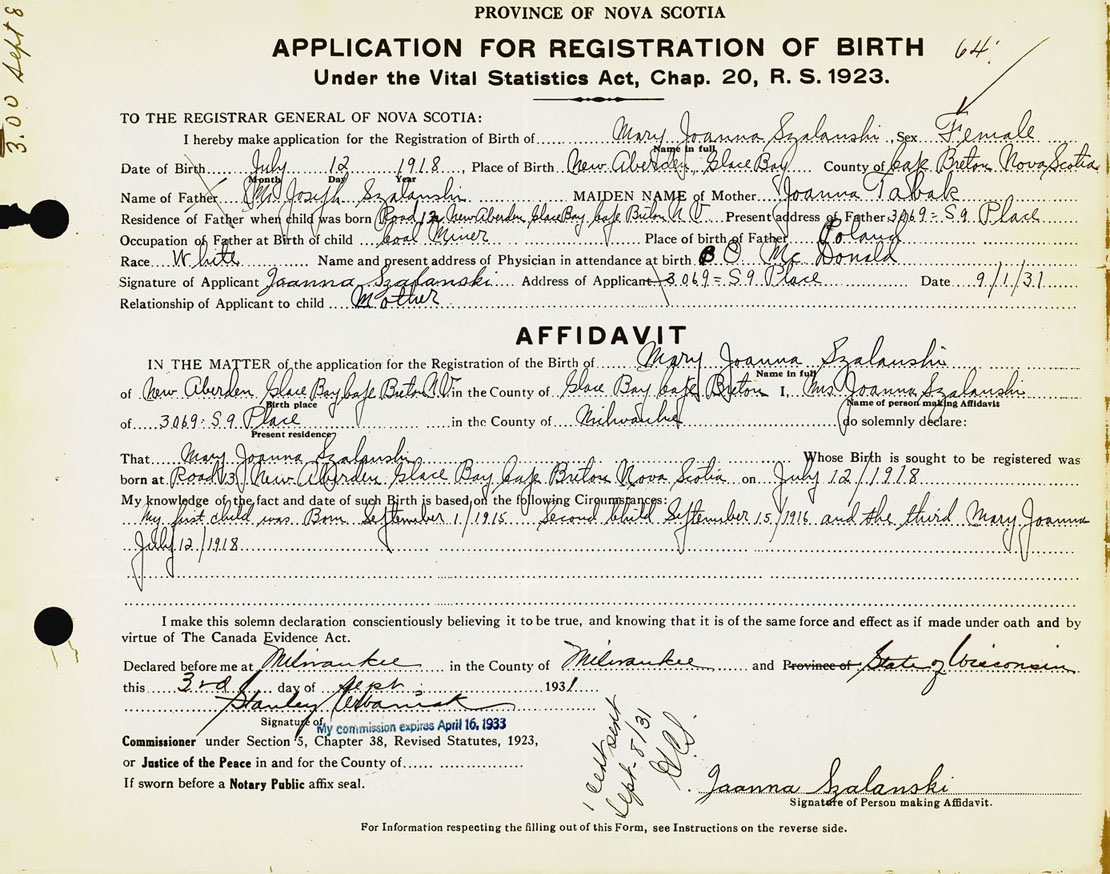 3.00 Sept 8
PROVINCE OF NOVA SCOTIA
APPLICATION FOR REGISTRATION OF BIRTH 64.
Under the Vital Statistics Act, Chap. 20, R. S. 1923.
TO THE REGISTRAR GENERAL OF NOVA SCOTIA:
I hereby make application for the Registration of Birth of Mary Joanna Szalanski, Sex Female
Name in full
Date of Birth July 12 1918, Place of Birth New Aberden, Glace Bay County of Cape Breton Nova Scotia
Month Day Year
Name of Father Mr Joseph Szalanski MAIDEN NAME of Mother Joanna Tabak
Residence of Father when child was born Road 13 New Aberden Glace Bay Cape Breton Present address of Father 3069 = S 9 Place
Occupation of Father at Birth of child Coal Miner Place of birth of Father Poland
Race White Name and present address of Physician in attendance at birth Mc Donald
Signature of Applicant Joanna Szalanski Address of Applicant 3069 = S 9 Place Date 9/1/31
Relationship of Applicant to child Mother
AFFIDAVIT
IN THE MATTER of the application for the Registration of the Birth of Mary Joanna Szalanski
Name in full
of New Aberden, Glace Bay Cape Breton in the County of Glace Bay Cape Breton I, Mrs Joanna Szalanski
Birth place Name of person making Affidavit
of 3069 = S 9 Place in the County of Milwaukee do solemnly declare:
Present residence
That Mary Joanna Szalanski Whose Birth is sought to be registered was
born at Road 13 New Aberden Glace Bay Cape Breton Nova Scotia on July 12/1918
My knowledge of the fact and date of such Birth is based on the following Circumstances:
My first child was Born September 1/1915 Second Child September 15/1916 and the third Mary Joanna
July 12/1918
I make this solemn declaration conscientiously believing it to be true, and knowing that it is of the same force and effect as if made under oath and by
virtue of The Canada Evidence Act.
Declared before me at Milwaukee in the County of Milwaukee and Province of State of Wisconsin
this 3rd day of Sept. 1931
Stanley Urbaniak
Signature of My commission expires April 16, 1933
Commissioner under Section 5, Chapter 38, Revised Statutes, 1923,
or Justice of the Peace in and for the County of
If sworn before a Notary Public affix seal.
Cert sent
Sept. 8/31
Joanna Szalanski
Signature of Person making Affidavit.
For Information respecting the filling out of this Form, see Instructions on the reverse side.